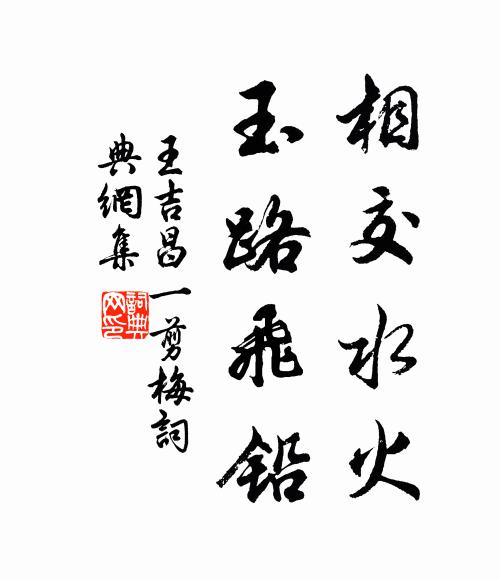 相交水火
玉路飛鉛
王吉昌一剪梅詞
典網集
詞典
网印